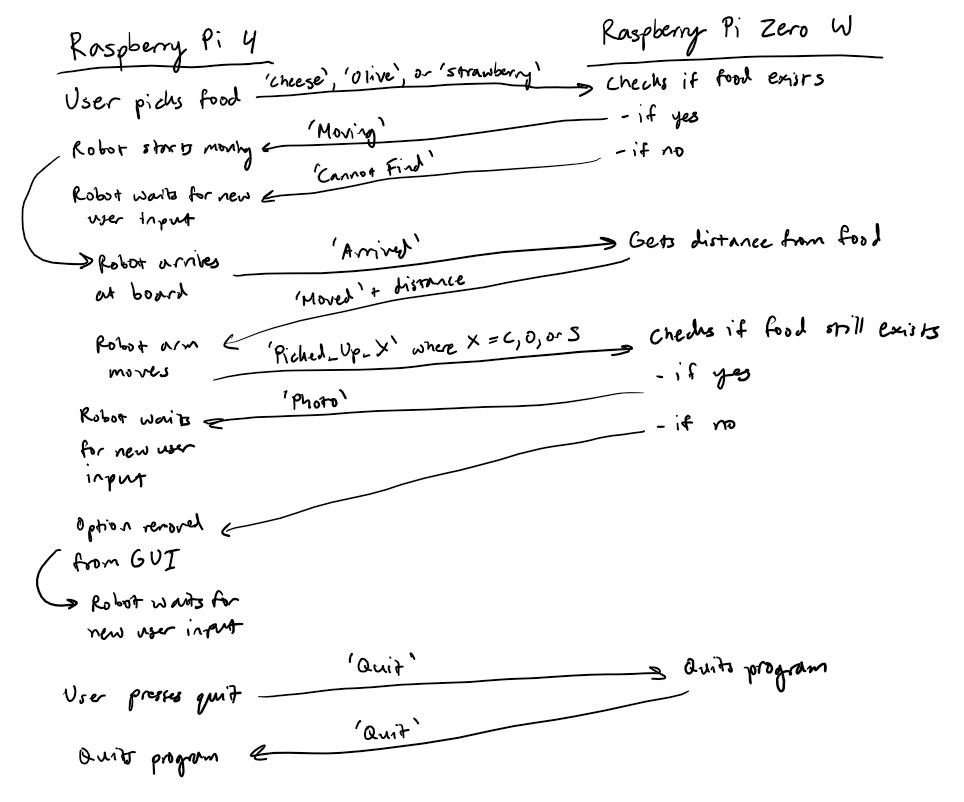 Raspberry Pi 4
Raspberry Pi Zero W
User picks food
'Cheese', 'Olive', or 'Strawberry'
Checks if food exists
- if yes
'Moving'
Robot starts moving
- if no
'Cannot Find'
Robot waits for new
user input
'Arrived'
Gets distance from food
Robot arrives
at board
'Moved' + distance
Robot arm
moves
'Picked_Up_X' where X = C, O, or S
Checks if food still exists
- if yes
'Photo'
Robot waits
for new user
input
- if no
Option removed
from GUI
Robot waits for
new user input
User presses quit
'Quit'
Quits program
'Quit'
Quits program